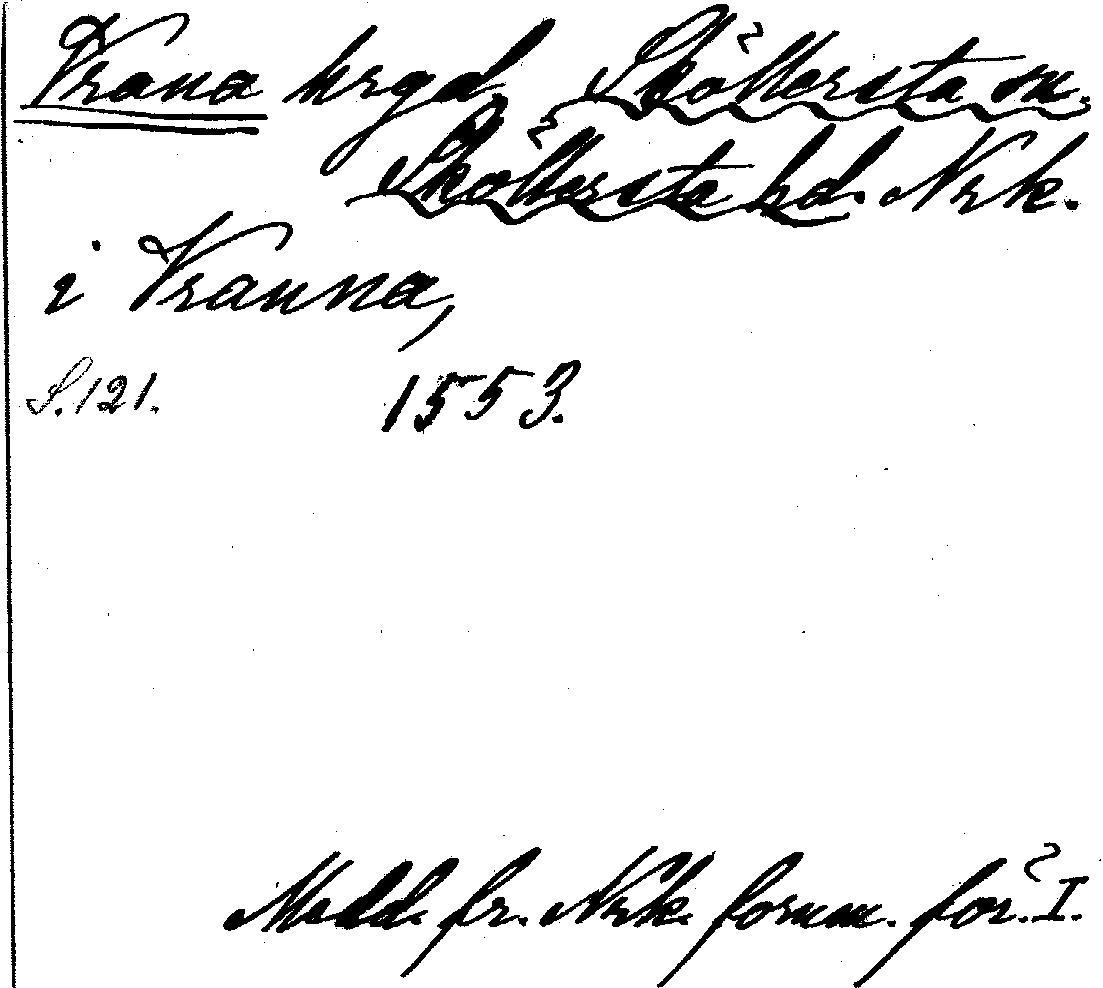 Vrana hrgd, Sköllersta sn.
Sköllersta hd. Nrk.
i Vranna,
S.121. 1553.
Medd. fr. Nrk. fornm. för. I.